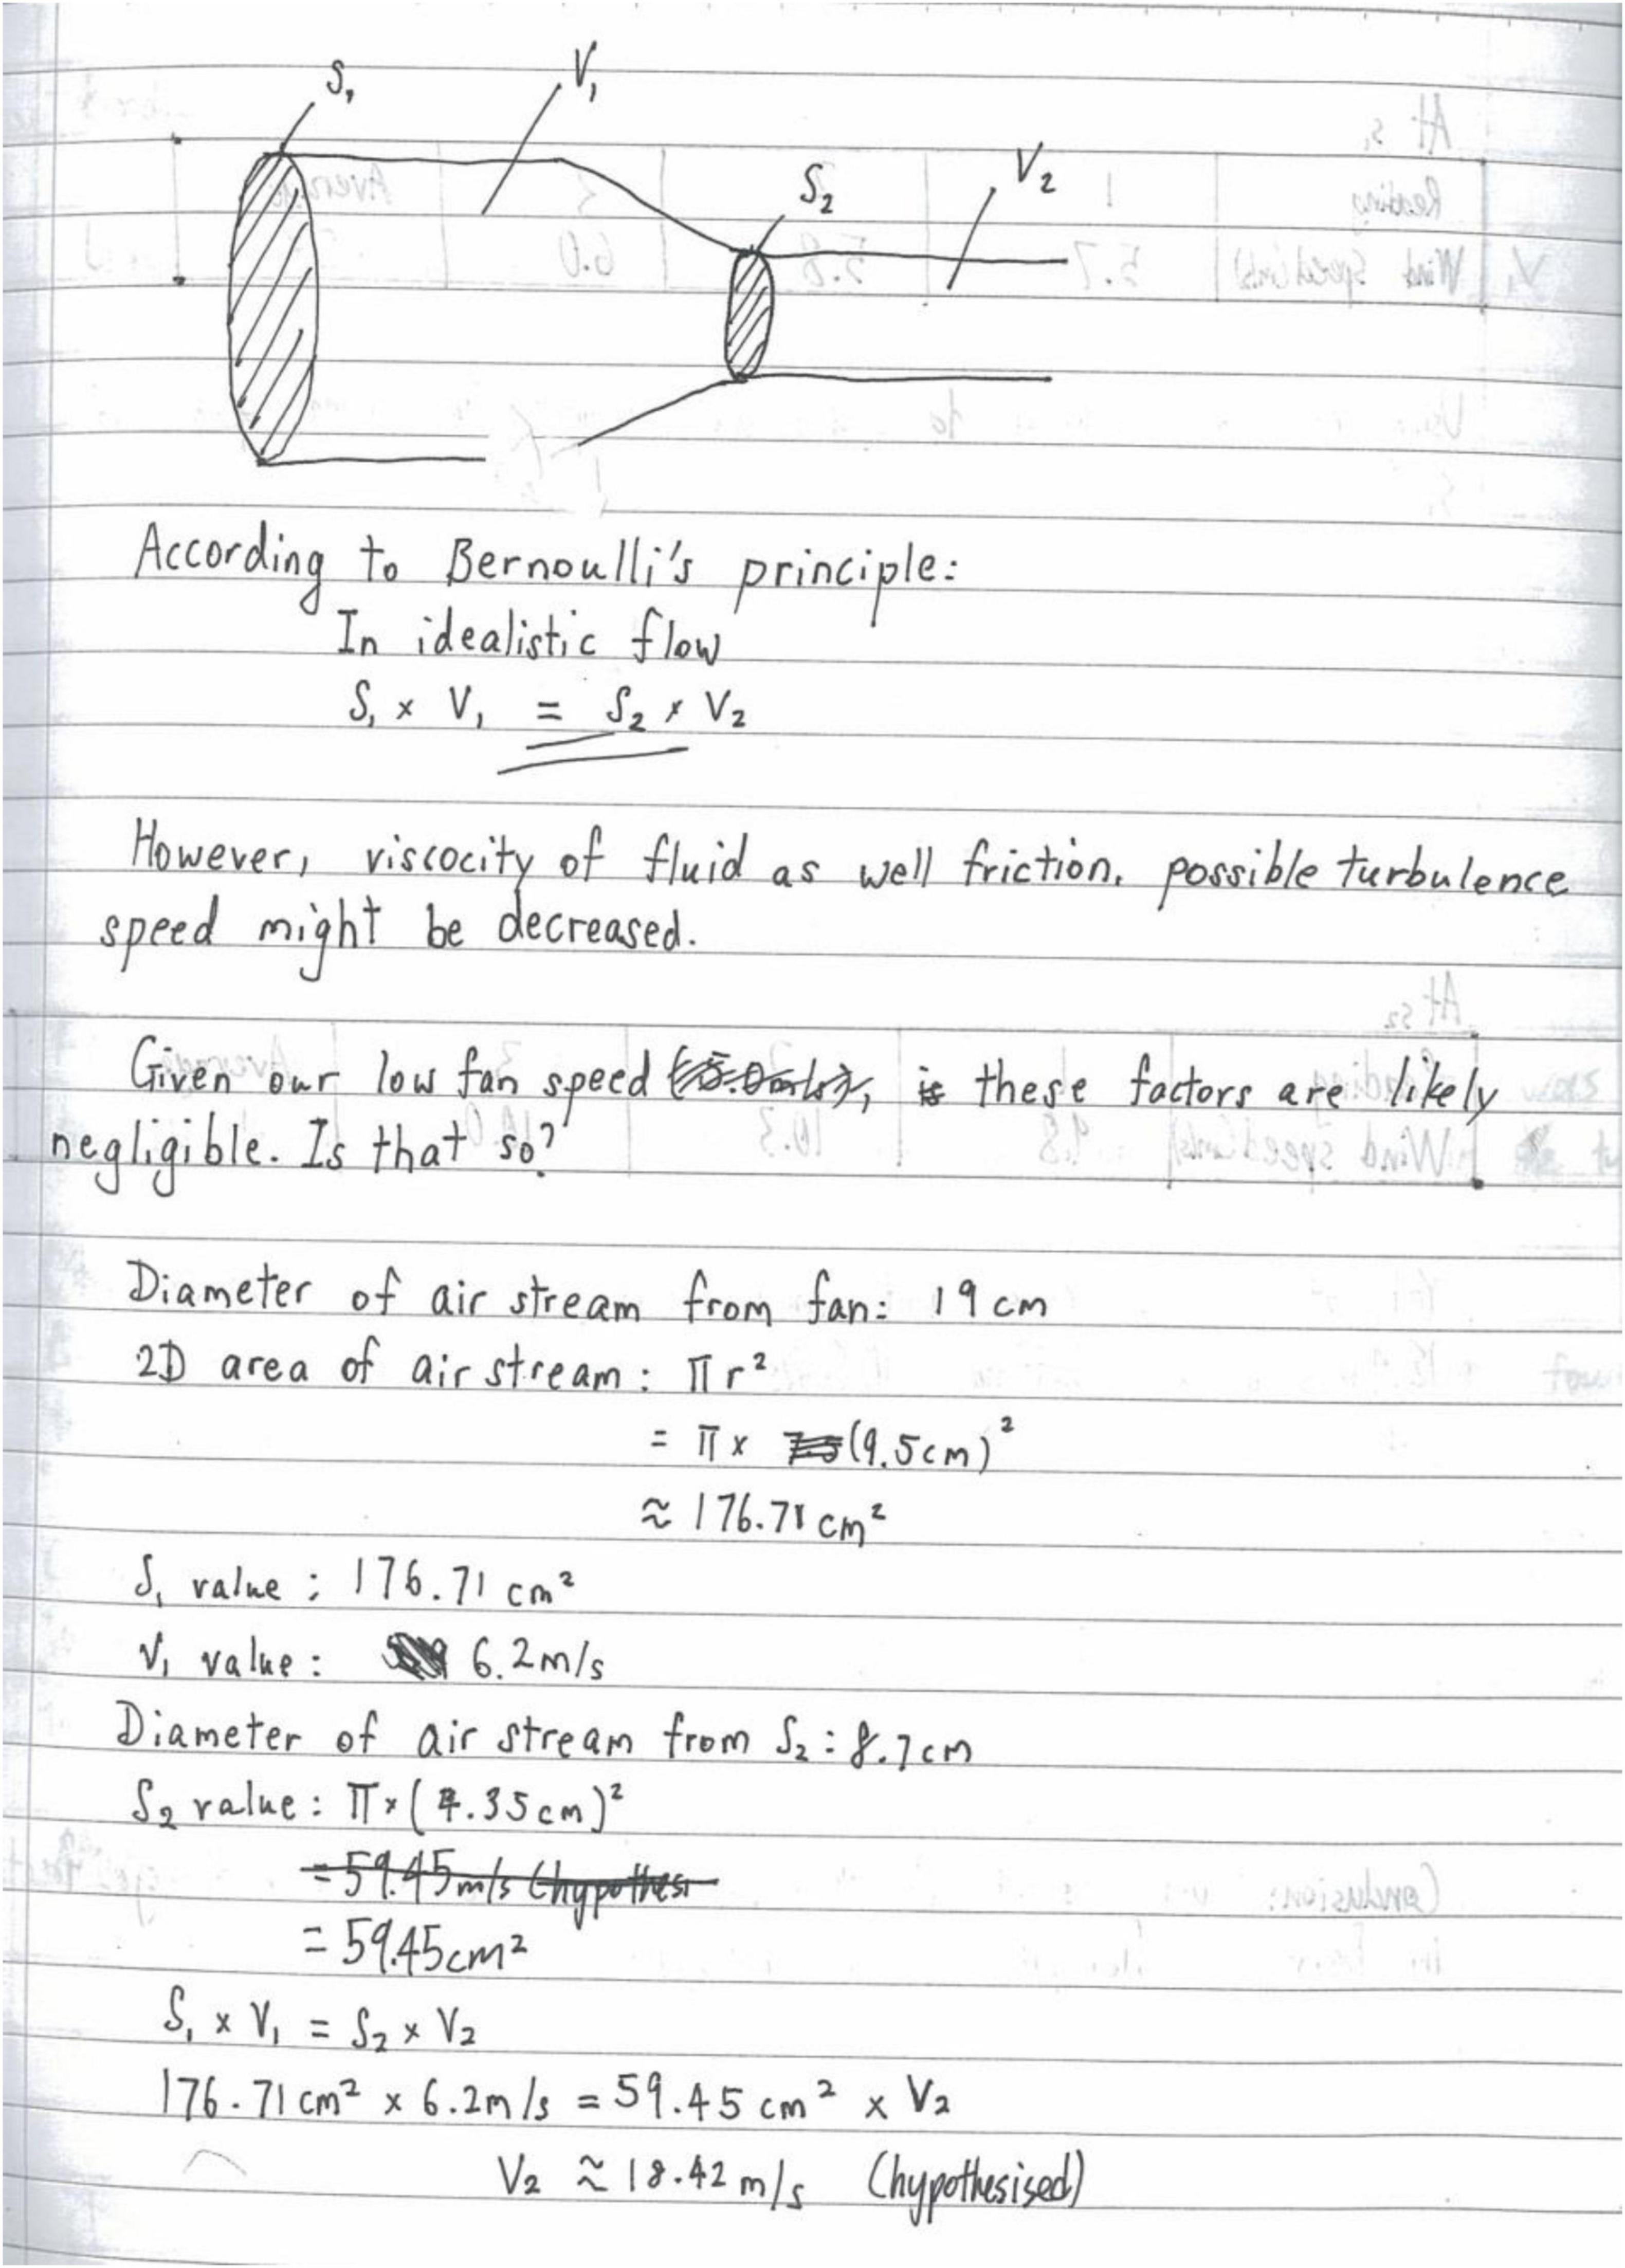 S₁
V₁
S₂
V₂
According to Bernoulli's principle:
In idealistic flow
S₁ × V₁ = S₂ × V₂
However, viscocity of fluid as well friction, possible turbulence
speed might be decreased.
Given our low fan speed, these factors are likely
negligible. Is that so?
Diameter of air stream from fan: 19 cm
2D area of air stream: πr²
= π × (9.5cm)²
≈ 176.71 cm²
S₁ value: 176.71 cm²
V₁ value: 6.2m/s
Diameter of air stream from S₂: 8.7cm
S₂ value: π×(4.35cm)²
= 59.45m/s (hypothesi
= 59.45cm²
S₁ × V₁ = S₂ × V₂
176.71 cm² × 6.2m/s = 59.45 cm² × V₂
V₂ ≈ 18.42 m/s (hypothesised)